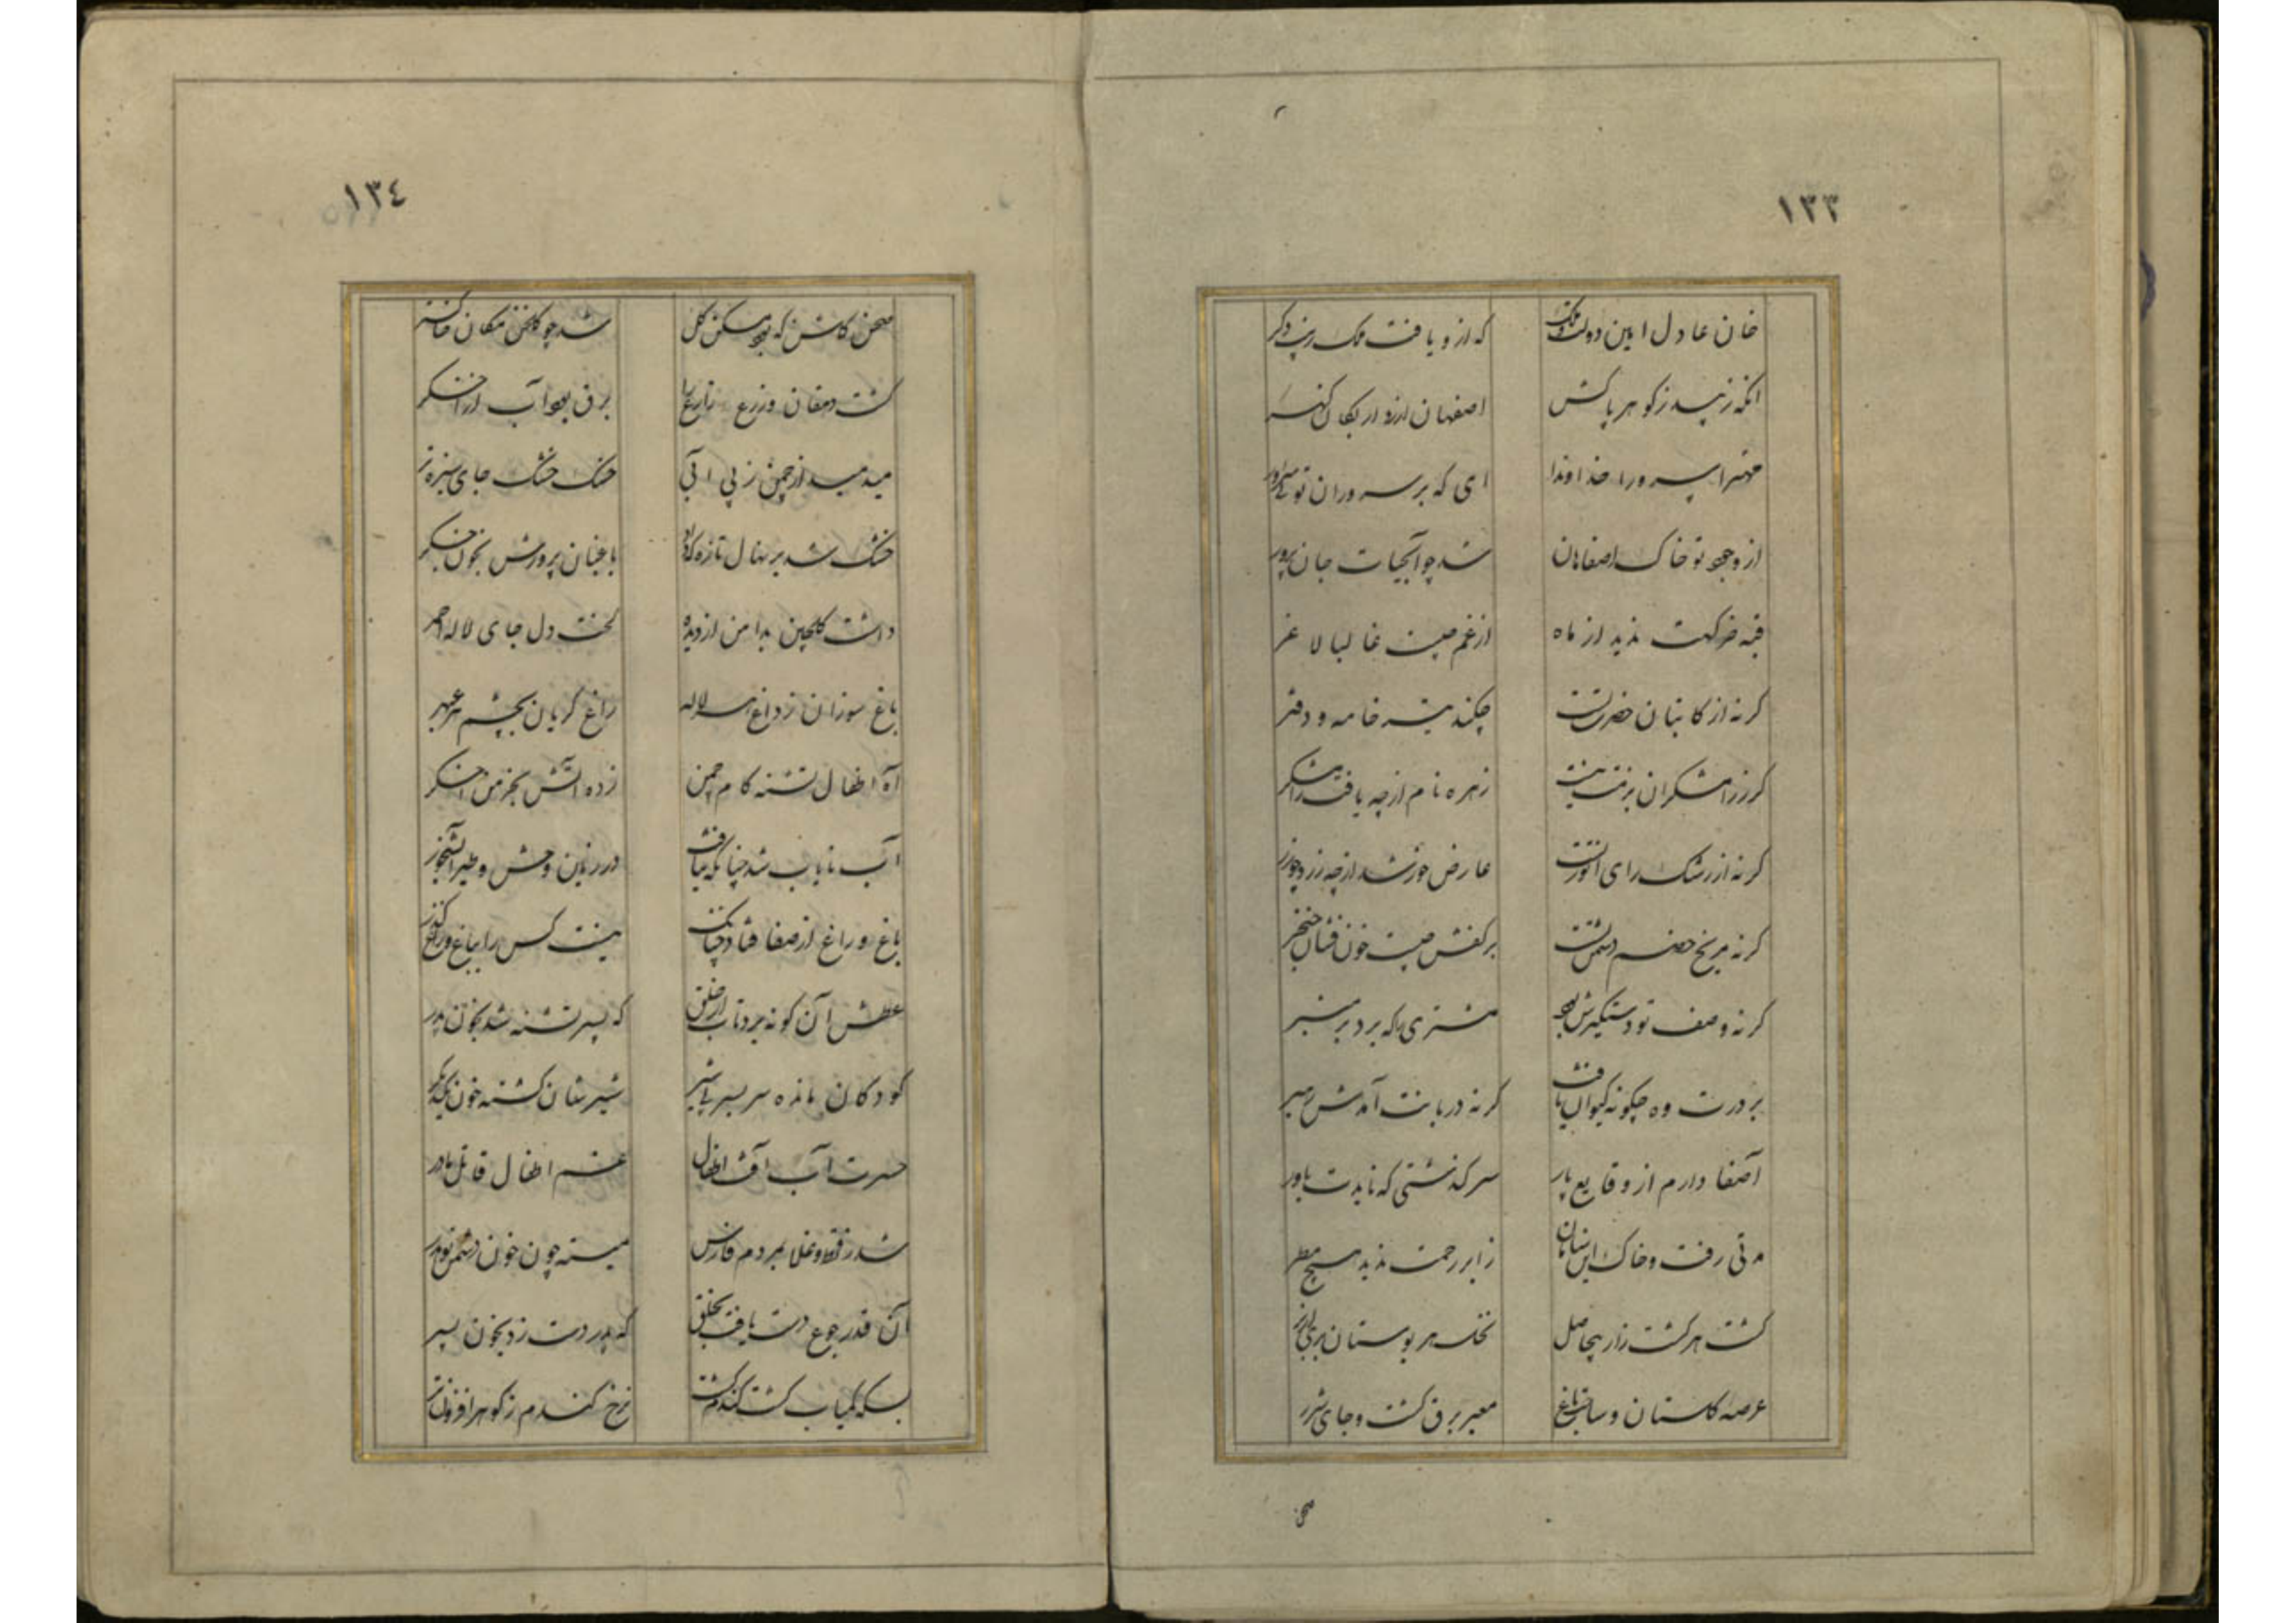 ١٣٣
خان عادل امین دولت و ملک که ازو یافت ملک زیب دگر
آنکه زیبد ز گوهر پاکش اصفهان را ازو اریکان گهر
مهترا سرورا خداوندا ای که بر سروران توئی سرور
از وجود تو خاک اصفاهان شد چو آبحیات جان پرور
قبه خرگهت ندید از ماه از غم چیست غالبا لاغر
گر نه از کاتبان حضرت تست چکند تیر خامه و دفتر
گر ز رامشگران بزمت نیست زهره نام از چه یافت رامشگر
گر نه از رشک رای انور تست عارض خورشید از چه زرد چو زر
گر نه مریخ خصم دشمن تست بر کفش چیست خون فشان خنجر
گر نه وصف تو دستگیرش بود مشتری را که برد بر منبر
بر درت وه چگونه کیوان یافت گر نه دربانت آمدش رهبر
آصفا دارم از وقایع پار سرگذشتی که نایدت باور
مدتی رفت و خاک این سامان ز ابر رحمت ندید هیچ مطر
گشت هر کشت زار بیحاصل نخل هر بوستان بری از بر
عرصه گلستان و ساحت باغ معبر برق گشت و جای شرر
صحن
١٣٤
صحن گلشن که بود مسکن گل شد چو گلخن مکان خاکستر
کشت دهقان و زرع زارع را برق بود آب ازر اخگر
میدمید از چمن ز بی آبی خشک خشک جای سبزه تر
خشک شد هر نهال تازه که داد باغبان پرورش بخون جگر
داشت گلچین بدامن از دیده لخت دل جای لاله احمر
باغ سوزان ز داغ لاله راغ گریان بچشم عبهر
آه اطفال تشنه کام چمن زده آتش بخرمن اخگر
آب نایاب شد چنانکه نیافت در زمین وحش و طیر آبشخور
باغ و راغ از صفا فتاد چنانک نیست کس را بباغ و راغ گذر
عطش آن گونه برد تاب از خلق که پسر تشنه شد بخون پدر
کودکان مانده سر بسر بی شیر شیرشان گشته خون یکدیگر
حسرت آب آفت اطفال غم اطفال قاتل مادر
شد ز قحط و غلا بمردم فارس میته چون خون دشمن تو هدر
آن قدر جوع دست یافت بخلق که پدر دست زد بخون پسر
بسکه کمیاب گشت گندم گشت نرخ گندم ز گوهر افزون تر